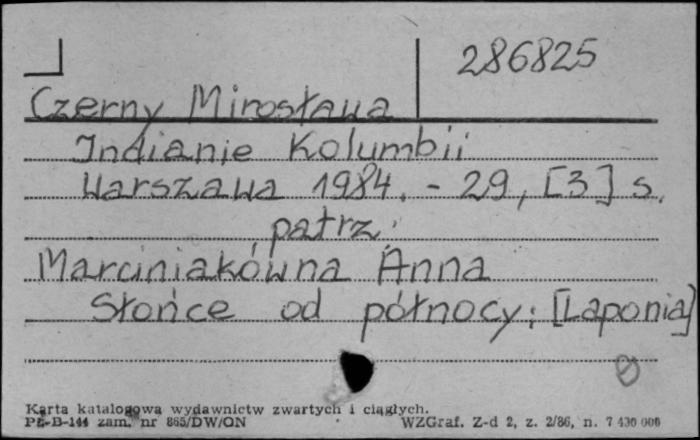 286825
Czerny Mirosława
Indianie Kolumbii
Warszawa 1984. - 29, [3] s.
patrz:
Marciniakówna Anna
Słońce od północy: [Laponia]
Karta katalogowa wydawnictw zwartych i ciągłych.
PZ-B-144 zam. nr 865/DW/ON WZGraf. Z-d 2, z. 2/86, n. 7 430 000